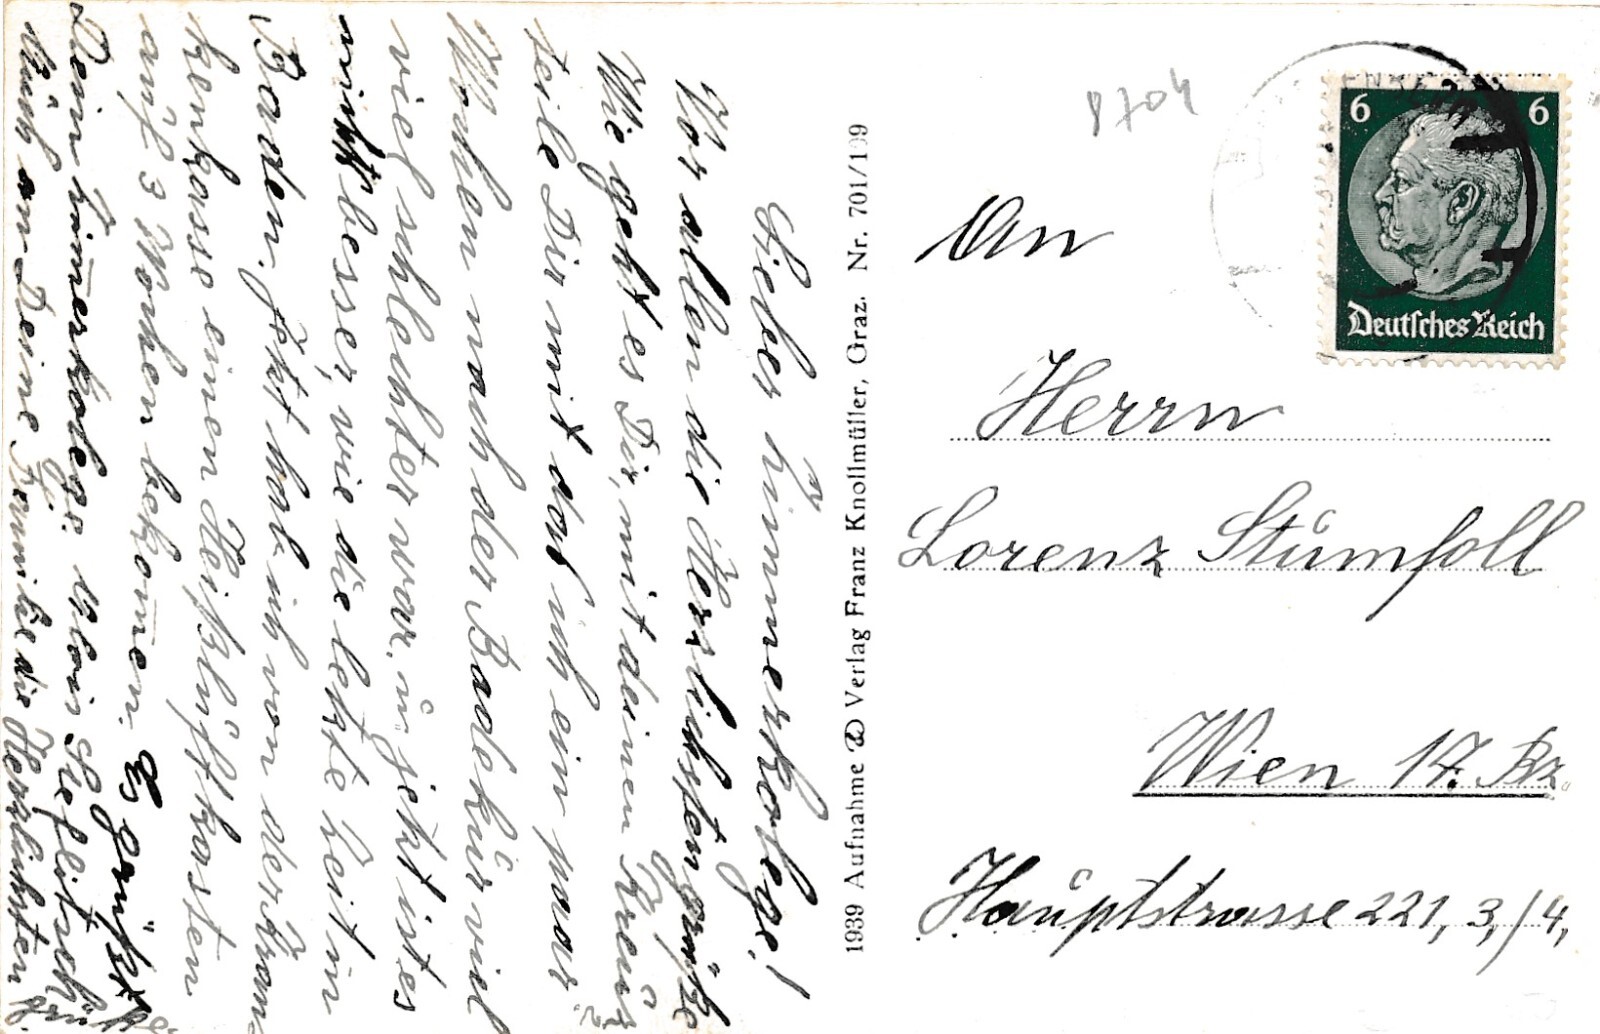 Lieber Zimmerkolege!
Vor allem die Herzlichsten grüße
Wie geht es Dir, mit deinen Kreuz?
teile Dir mit das ich ein paar
Wochen nach der Badekur viel
viel schlechter war, u jetzt ist es
nicht besser, wie die letzte Zeit in
Baden. Jetzt hab ich von der Kran
kenkasse einen Heißluftkasten
auf 3 Wochen bekomen. Es grüßt
Dein Zimerkolege
auch an Deine Familie die Herzlichsten g.
1939 Aufnahme & Verlag Franz Knollmüller, Graz. Nr. 701/199
8704
6 6
Deutsches Reich
An
Herrn
Lorenz Stümpfoll
Wien 17. Bz.
Hauptstrasse 221, 3,/4,